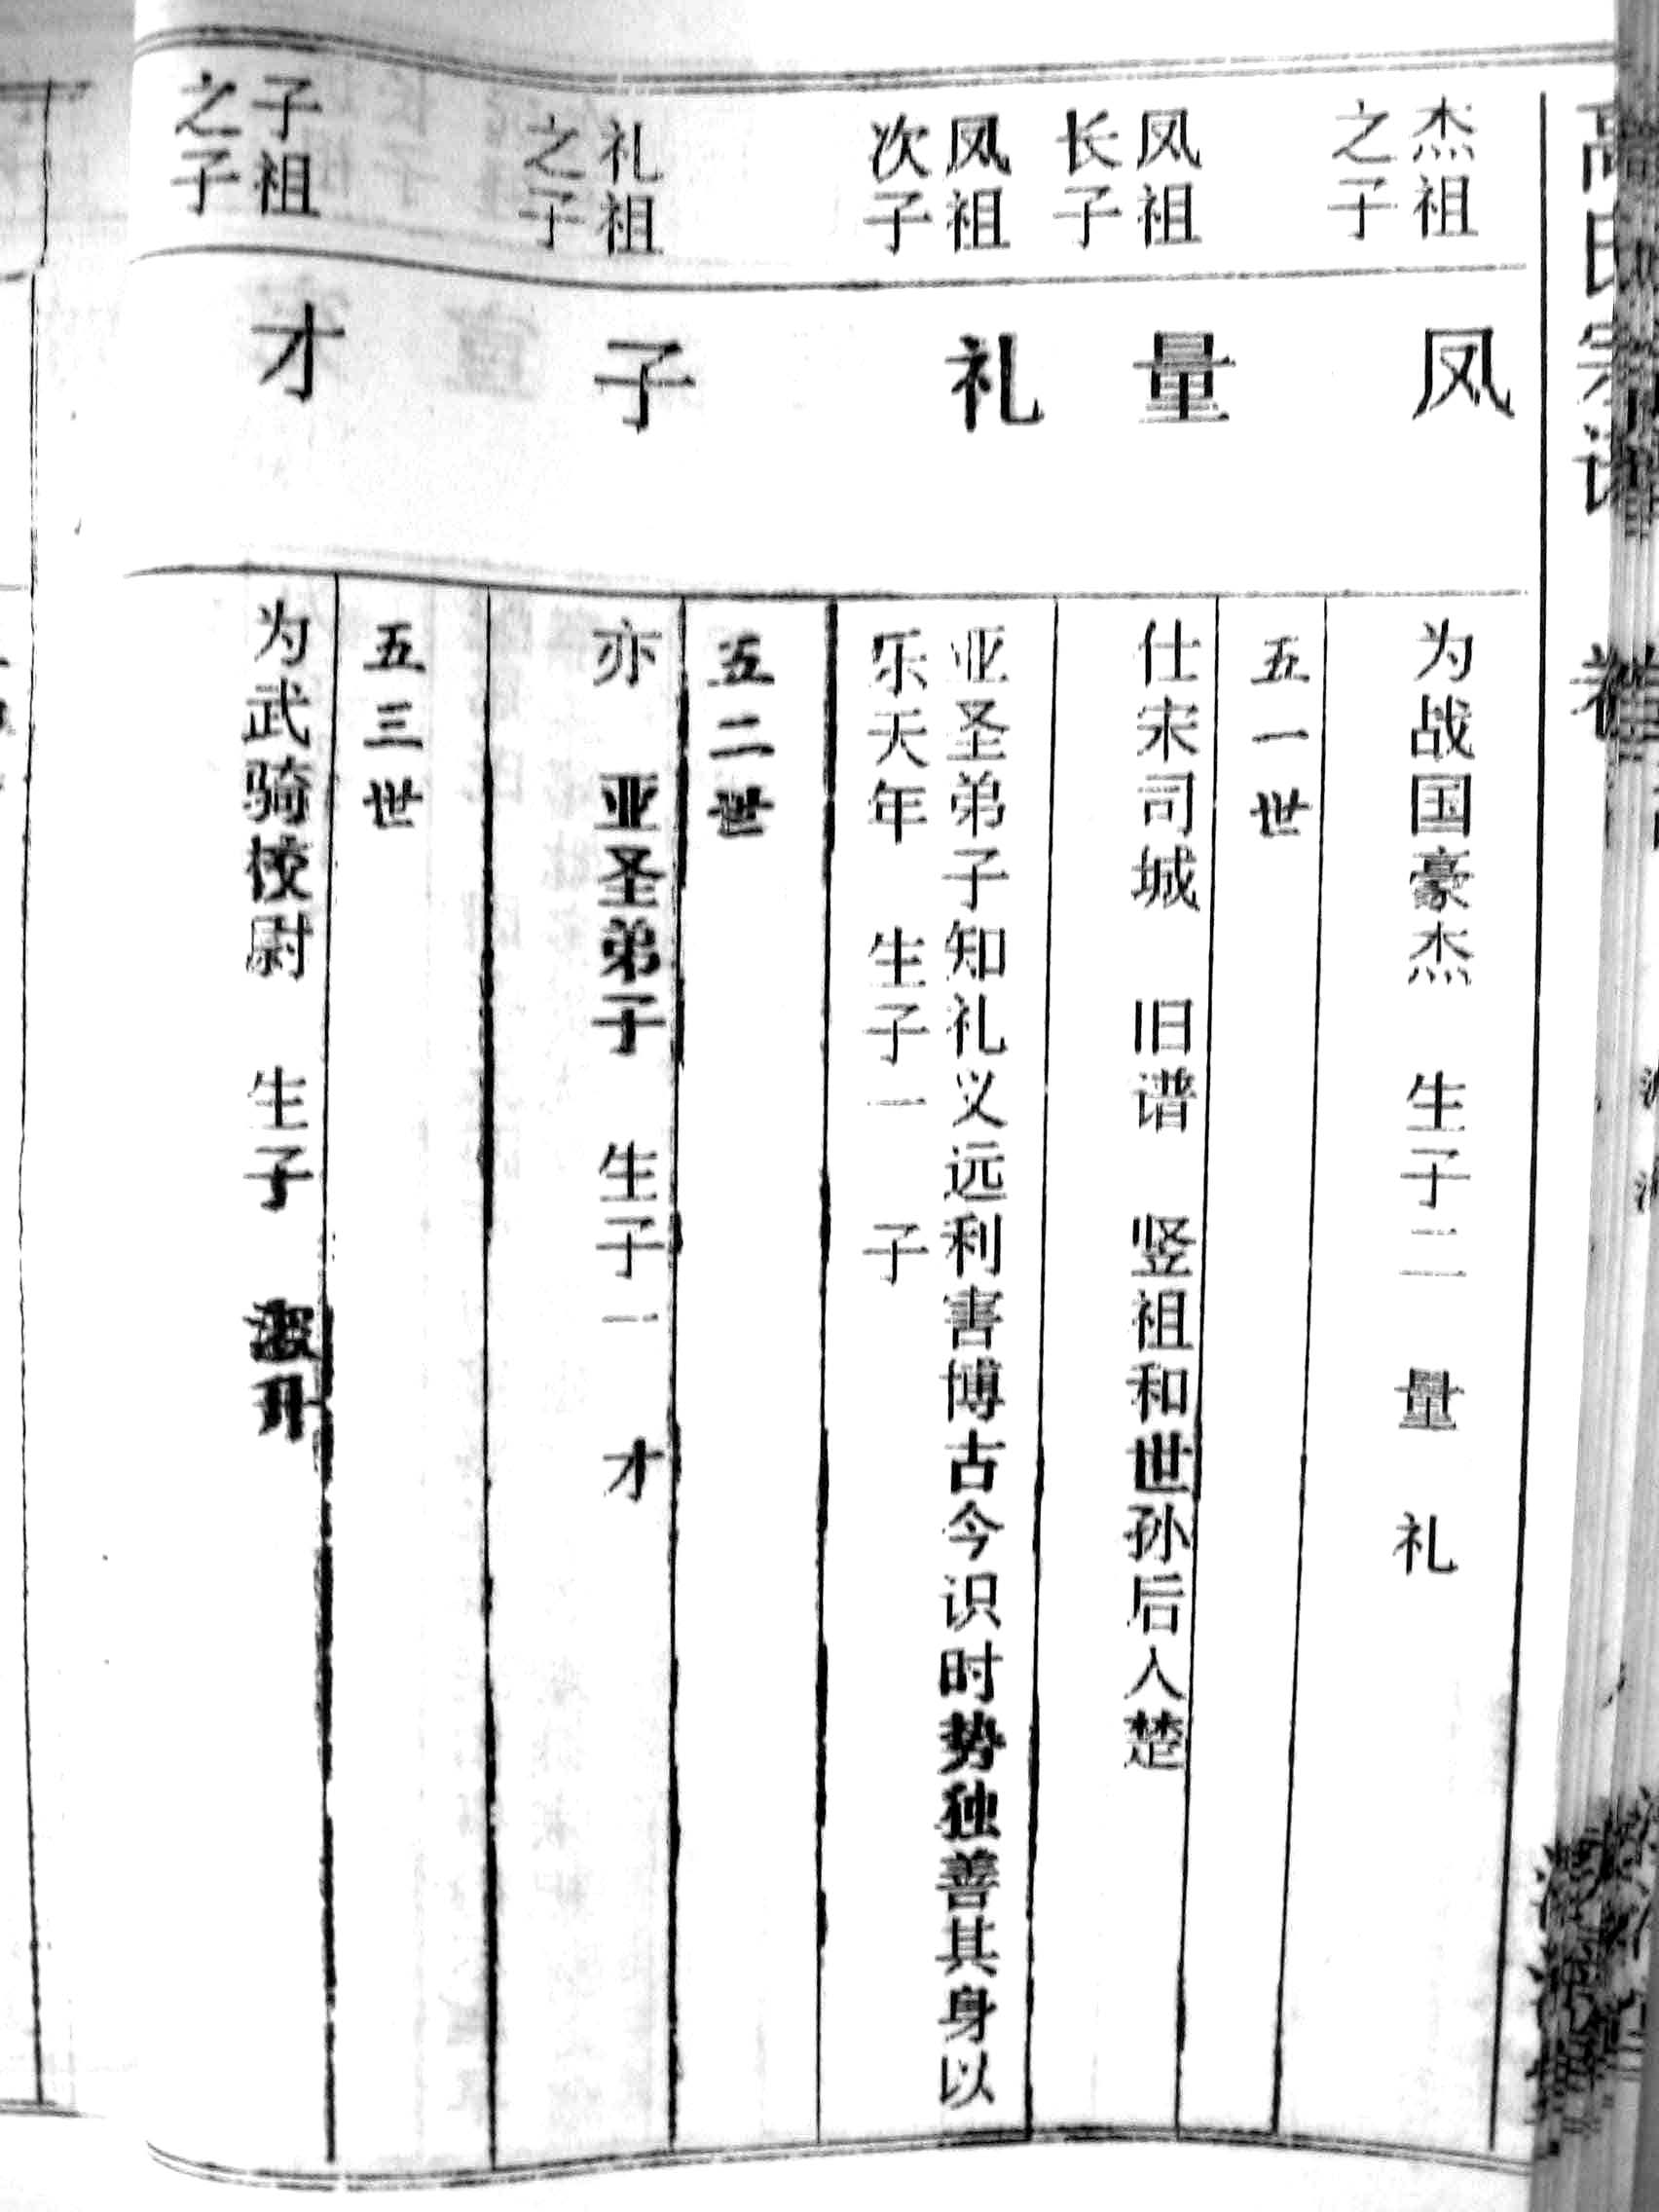 高氏宗谱 卷
杰祖
之子
凤
为战国豪杰 生子二 量 礼
五一世
凤祖
长子
量
仕宋司城 旧谱 竖祖和世孙后入楚
凤祖
次子
礼
亚圣弟子知礼义远利害博古今识时势独善其身以
乐天年 生子一 子
五二世
礼祖
之子
子
亦 亚圣弟子 生子一 才
五三世
子祖
之子
才
为武骑校尉 生子